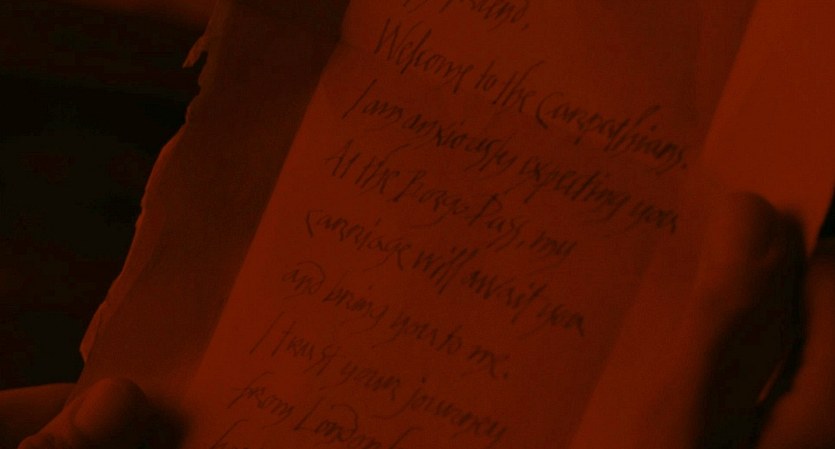 friend,
Welcome to the Carpathians.
I am anxiously expecting you
At the Borgo Pass, my
carriage will await you
and bring you to me.
I trust your journey
from London